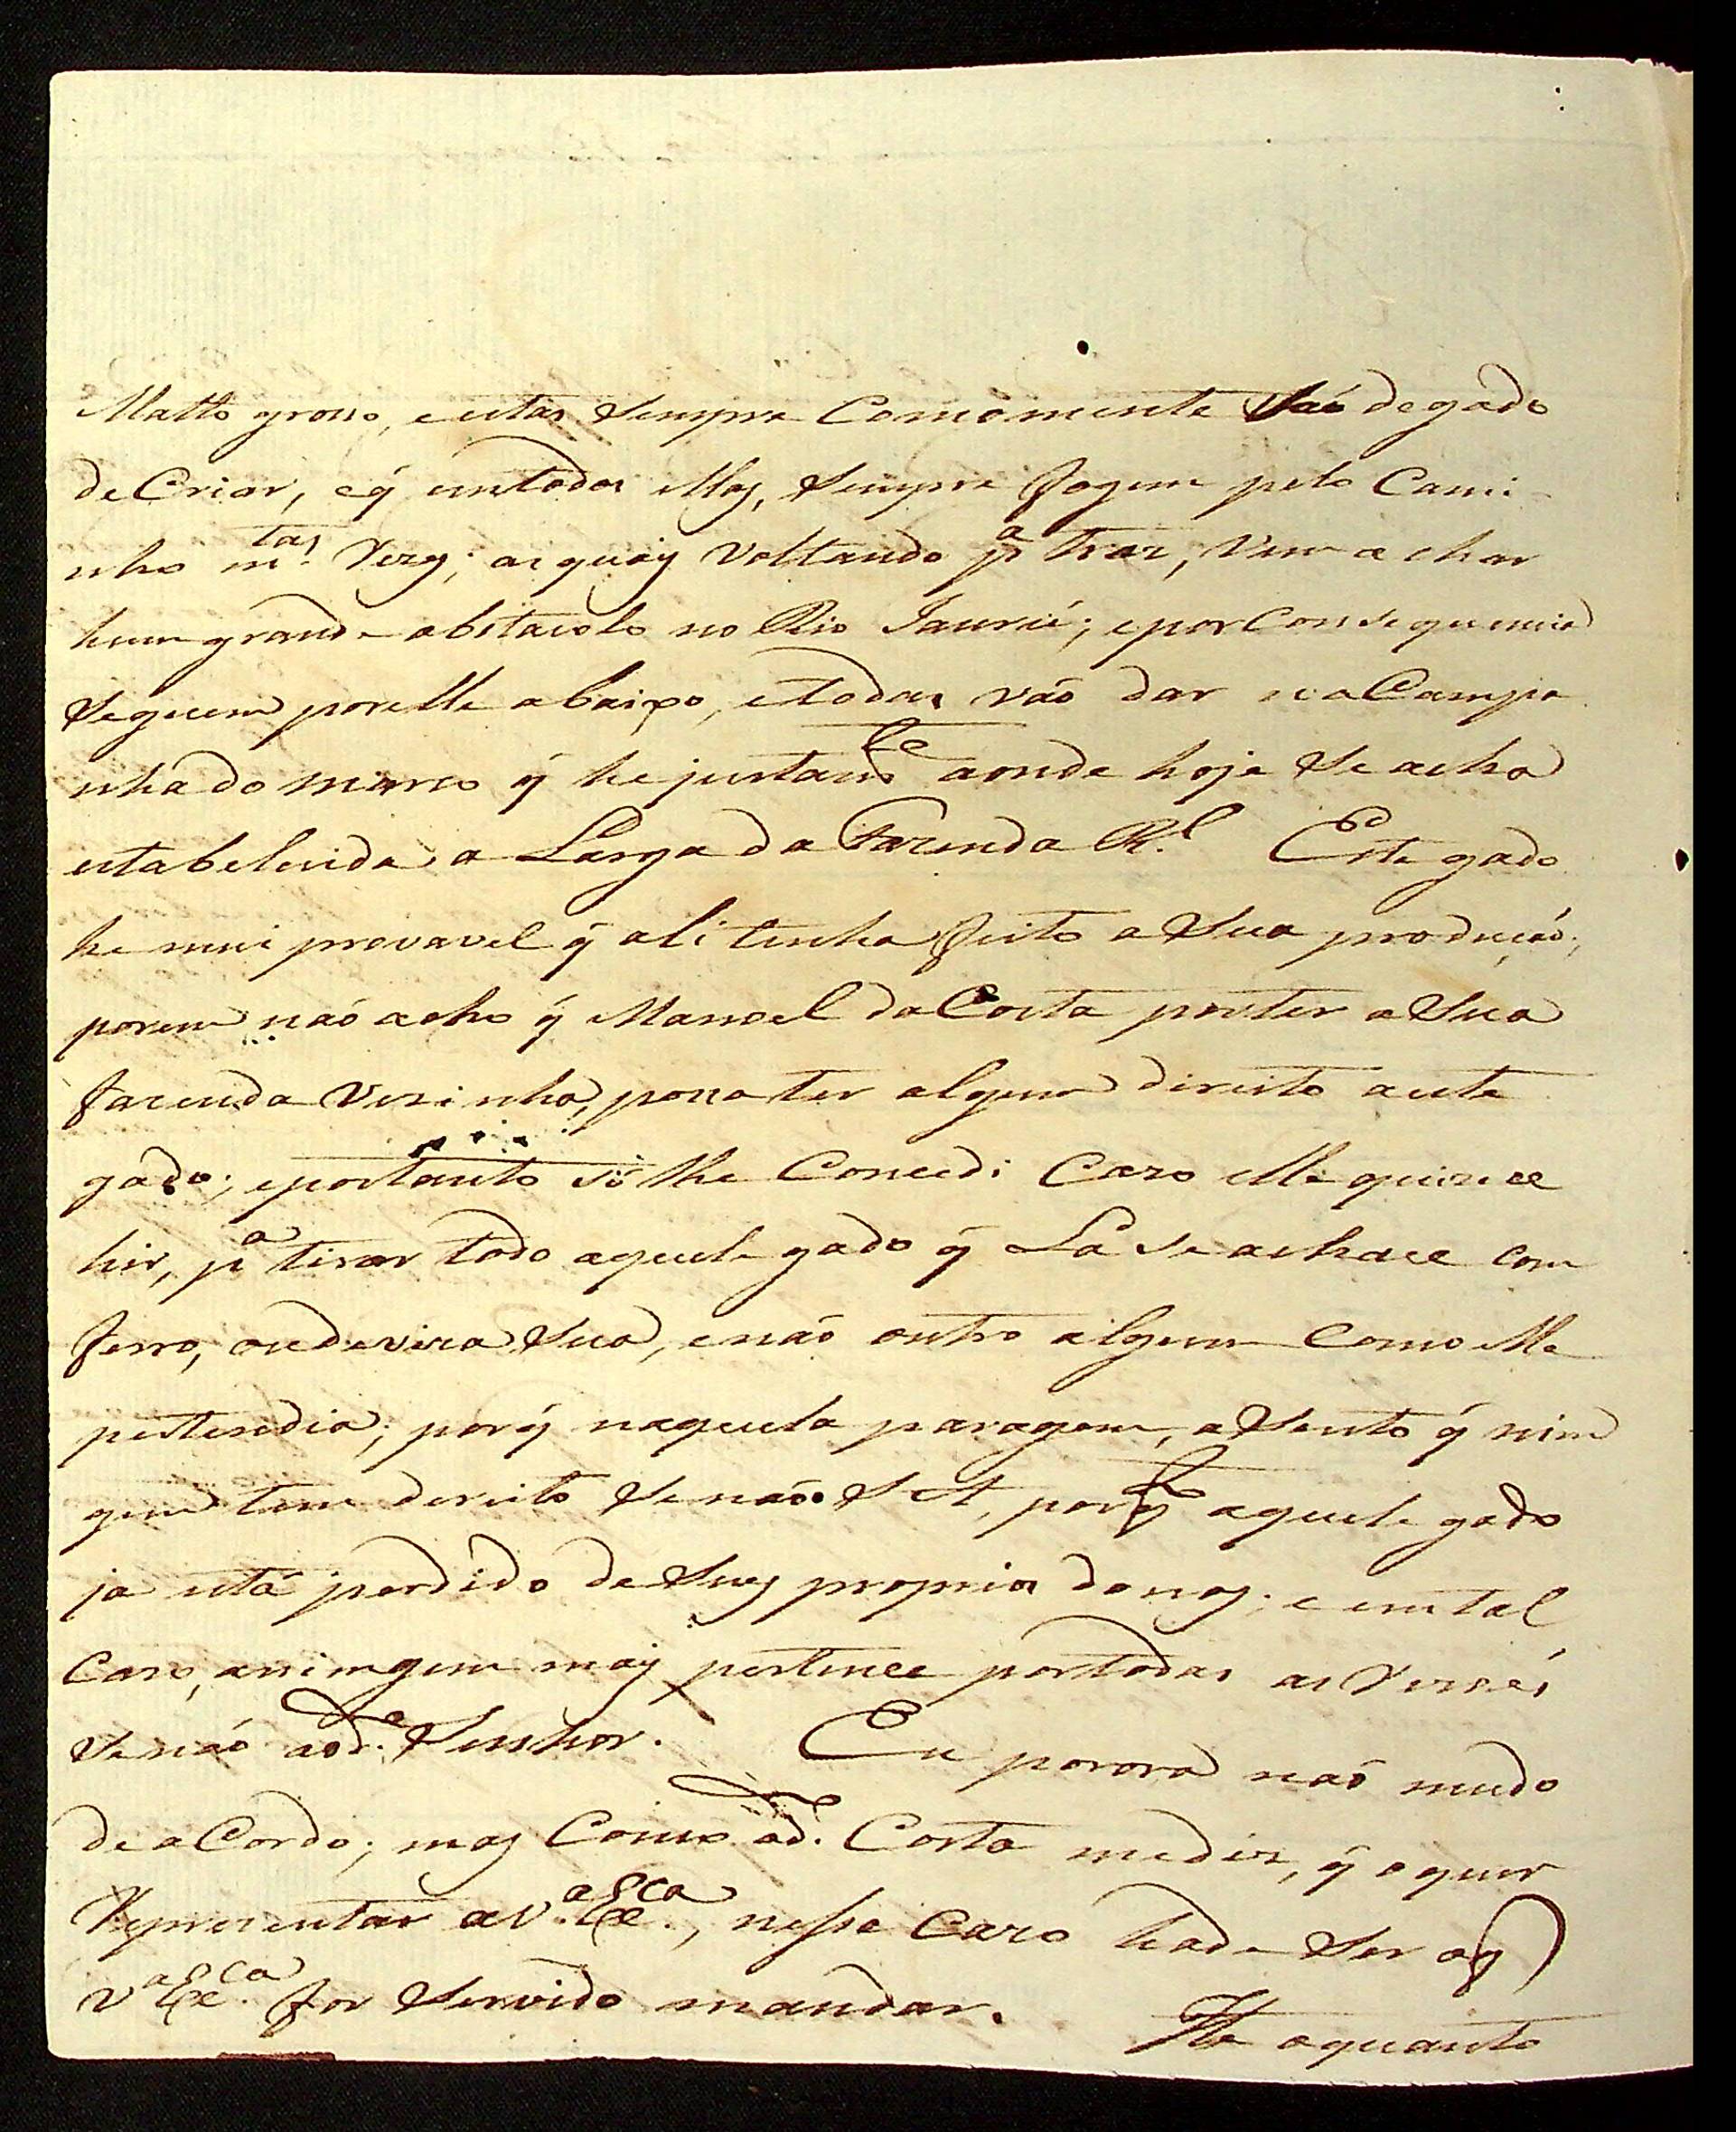 Matto grosso, e estas sempre Comomente saó degado
deCriar, eq̃ emtodas ellas, sempre fogem pelo Cami-
nho m.tas Rezes; as quais Voltando p.a traz, vem achar
hum grande obstacolo no Rio Jaurú; eporConsequencia
seguem porelle abaixo, etodas váo dar naCampa
nha do marco q̃ he justam.te aonde hoje se acha
estabelecida a Larga da Fazenda R.l Este gado
he mui provavel q̃ ali tenha feito a Sua produçaó;
porem naó acho q̃ Manoel daCosta porter a Sua
fazenda Vezinha, possa ter algum direito a este
gado; eportanto só lhe Concedi Cazo elle quizece
hir, p.a tirar todo aquele gado q̃ Lá se achace com
ferro, ou devisa Sua, enaó outro algum Como elle
pertendia; porq̃ naquela paragem, asento q̃ nim
gem tem dereito senaó S A, porq̃ aquele gado
ja está perdido de Seus proprios donos; e em tal
Cazo, animgem mais pertence portodas as Rezões
senaó aod.e Senhor. Eu porora naó mudo
de aCordo; mas Como od.e Costa mediz, q̃ oquer
Reprezentar aV.a Ex.ca, nesse Cazo hade Ser oq̃
V.a Ex.ca for Servido mandar.
He oquanto